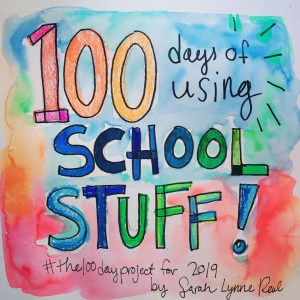 100 days of
using
SCHOOL
STUFF!
#the100dayproject for 2019
by Sarah Lynne Reul